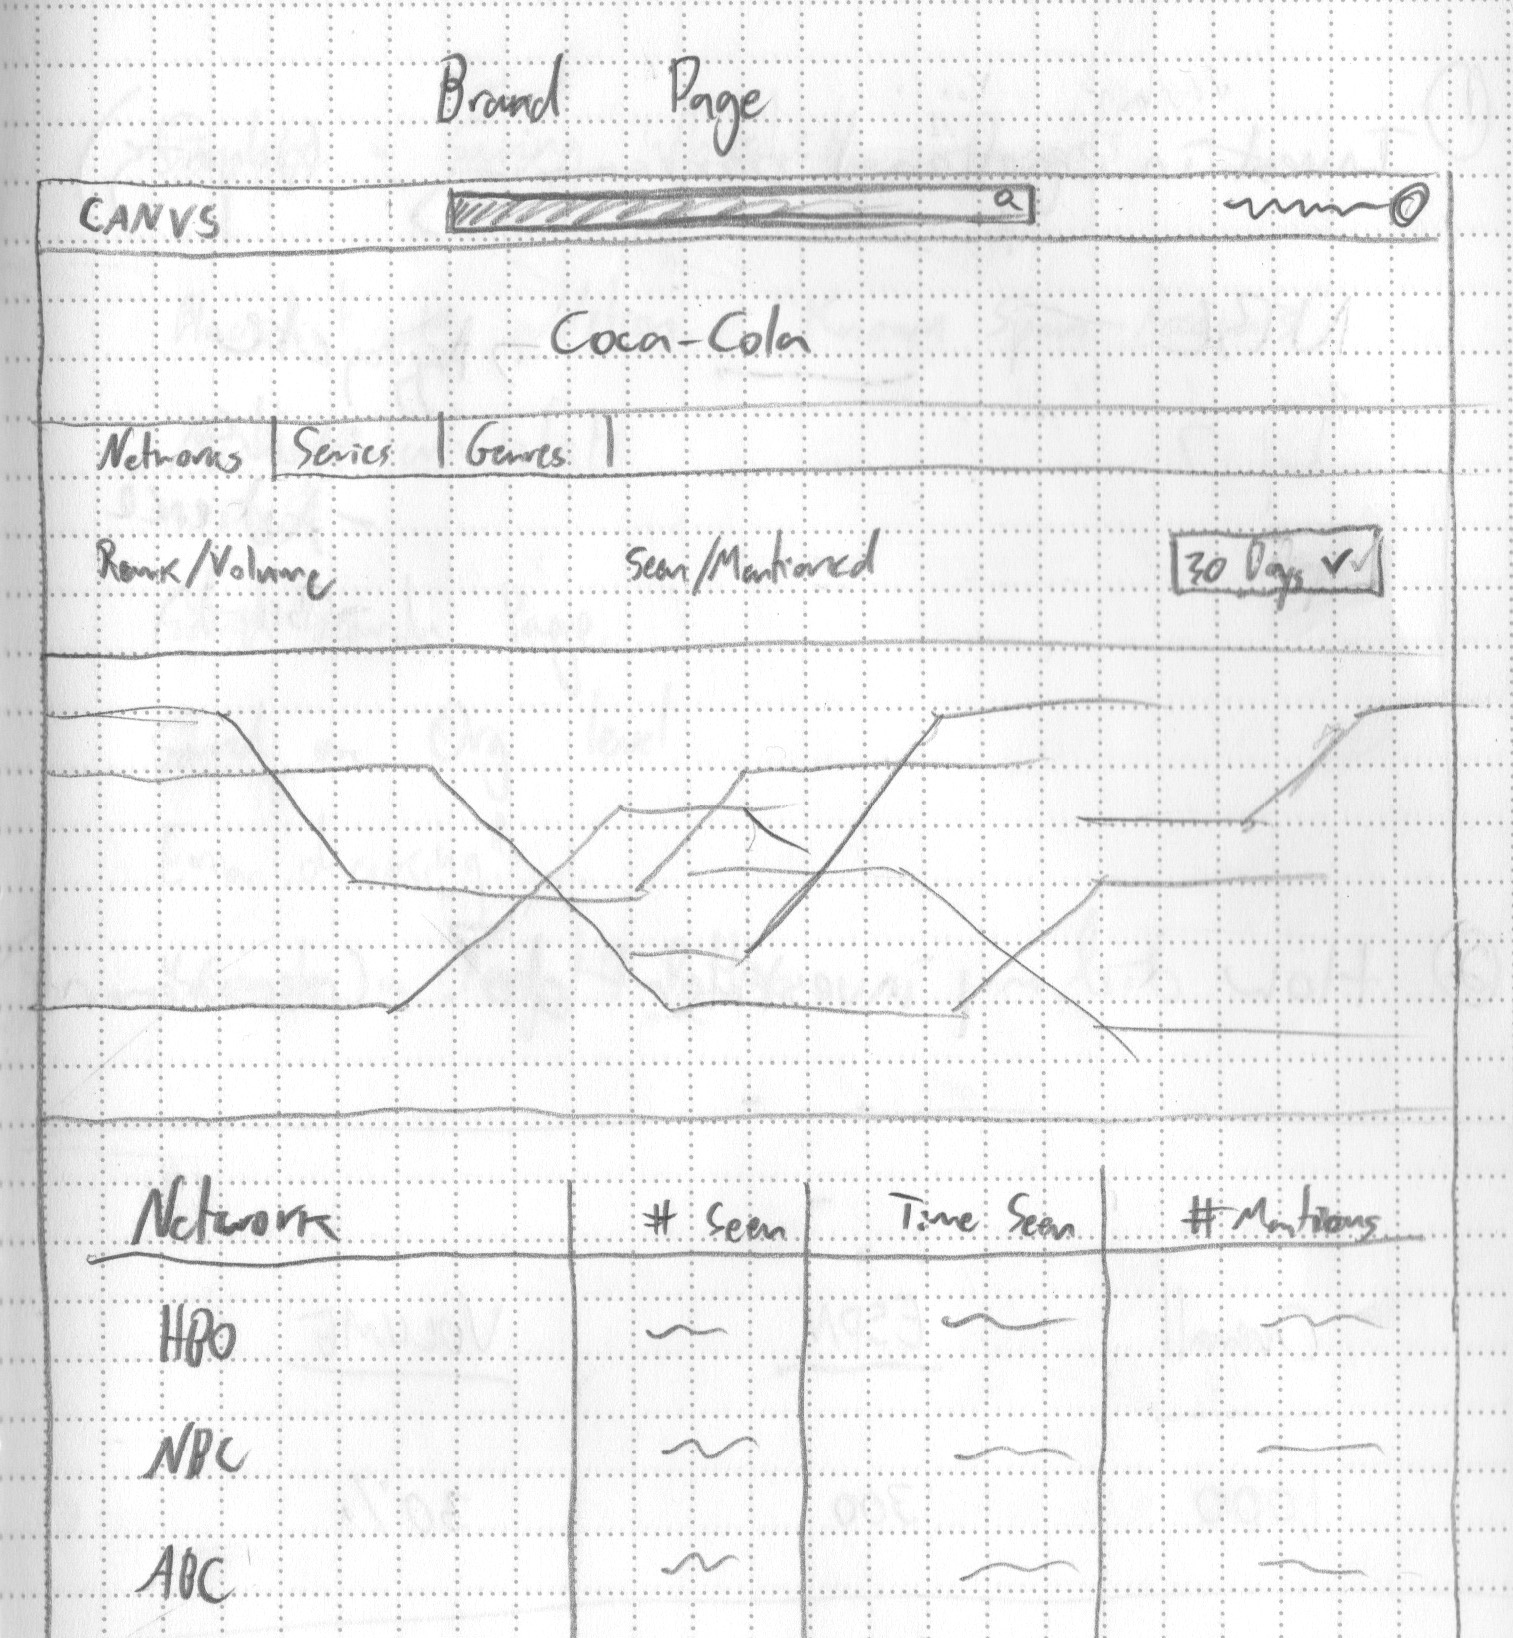 Brand Page
CANVS
Coca-Cola
Networks Series Genres
Rank/Volume Seen/Mentioned 30 Days
Network # Seen Time Seen # Mentions
HBO
NBC
ABC